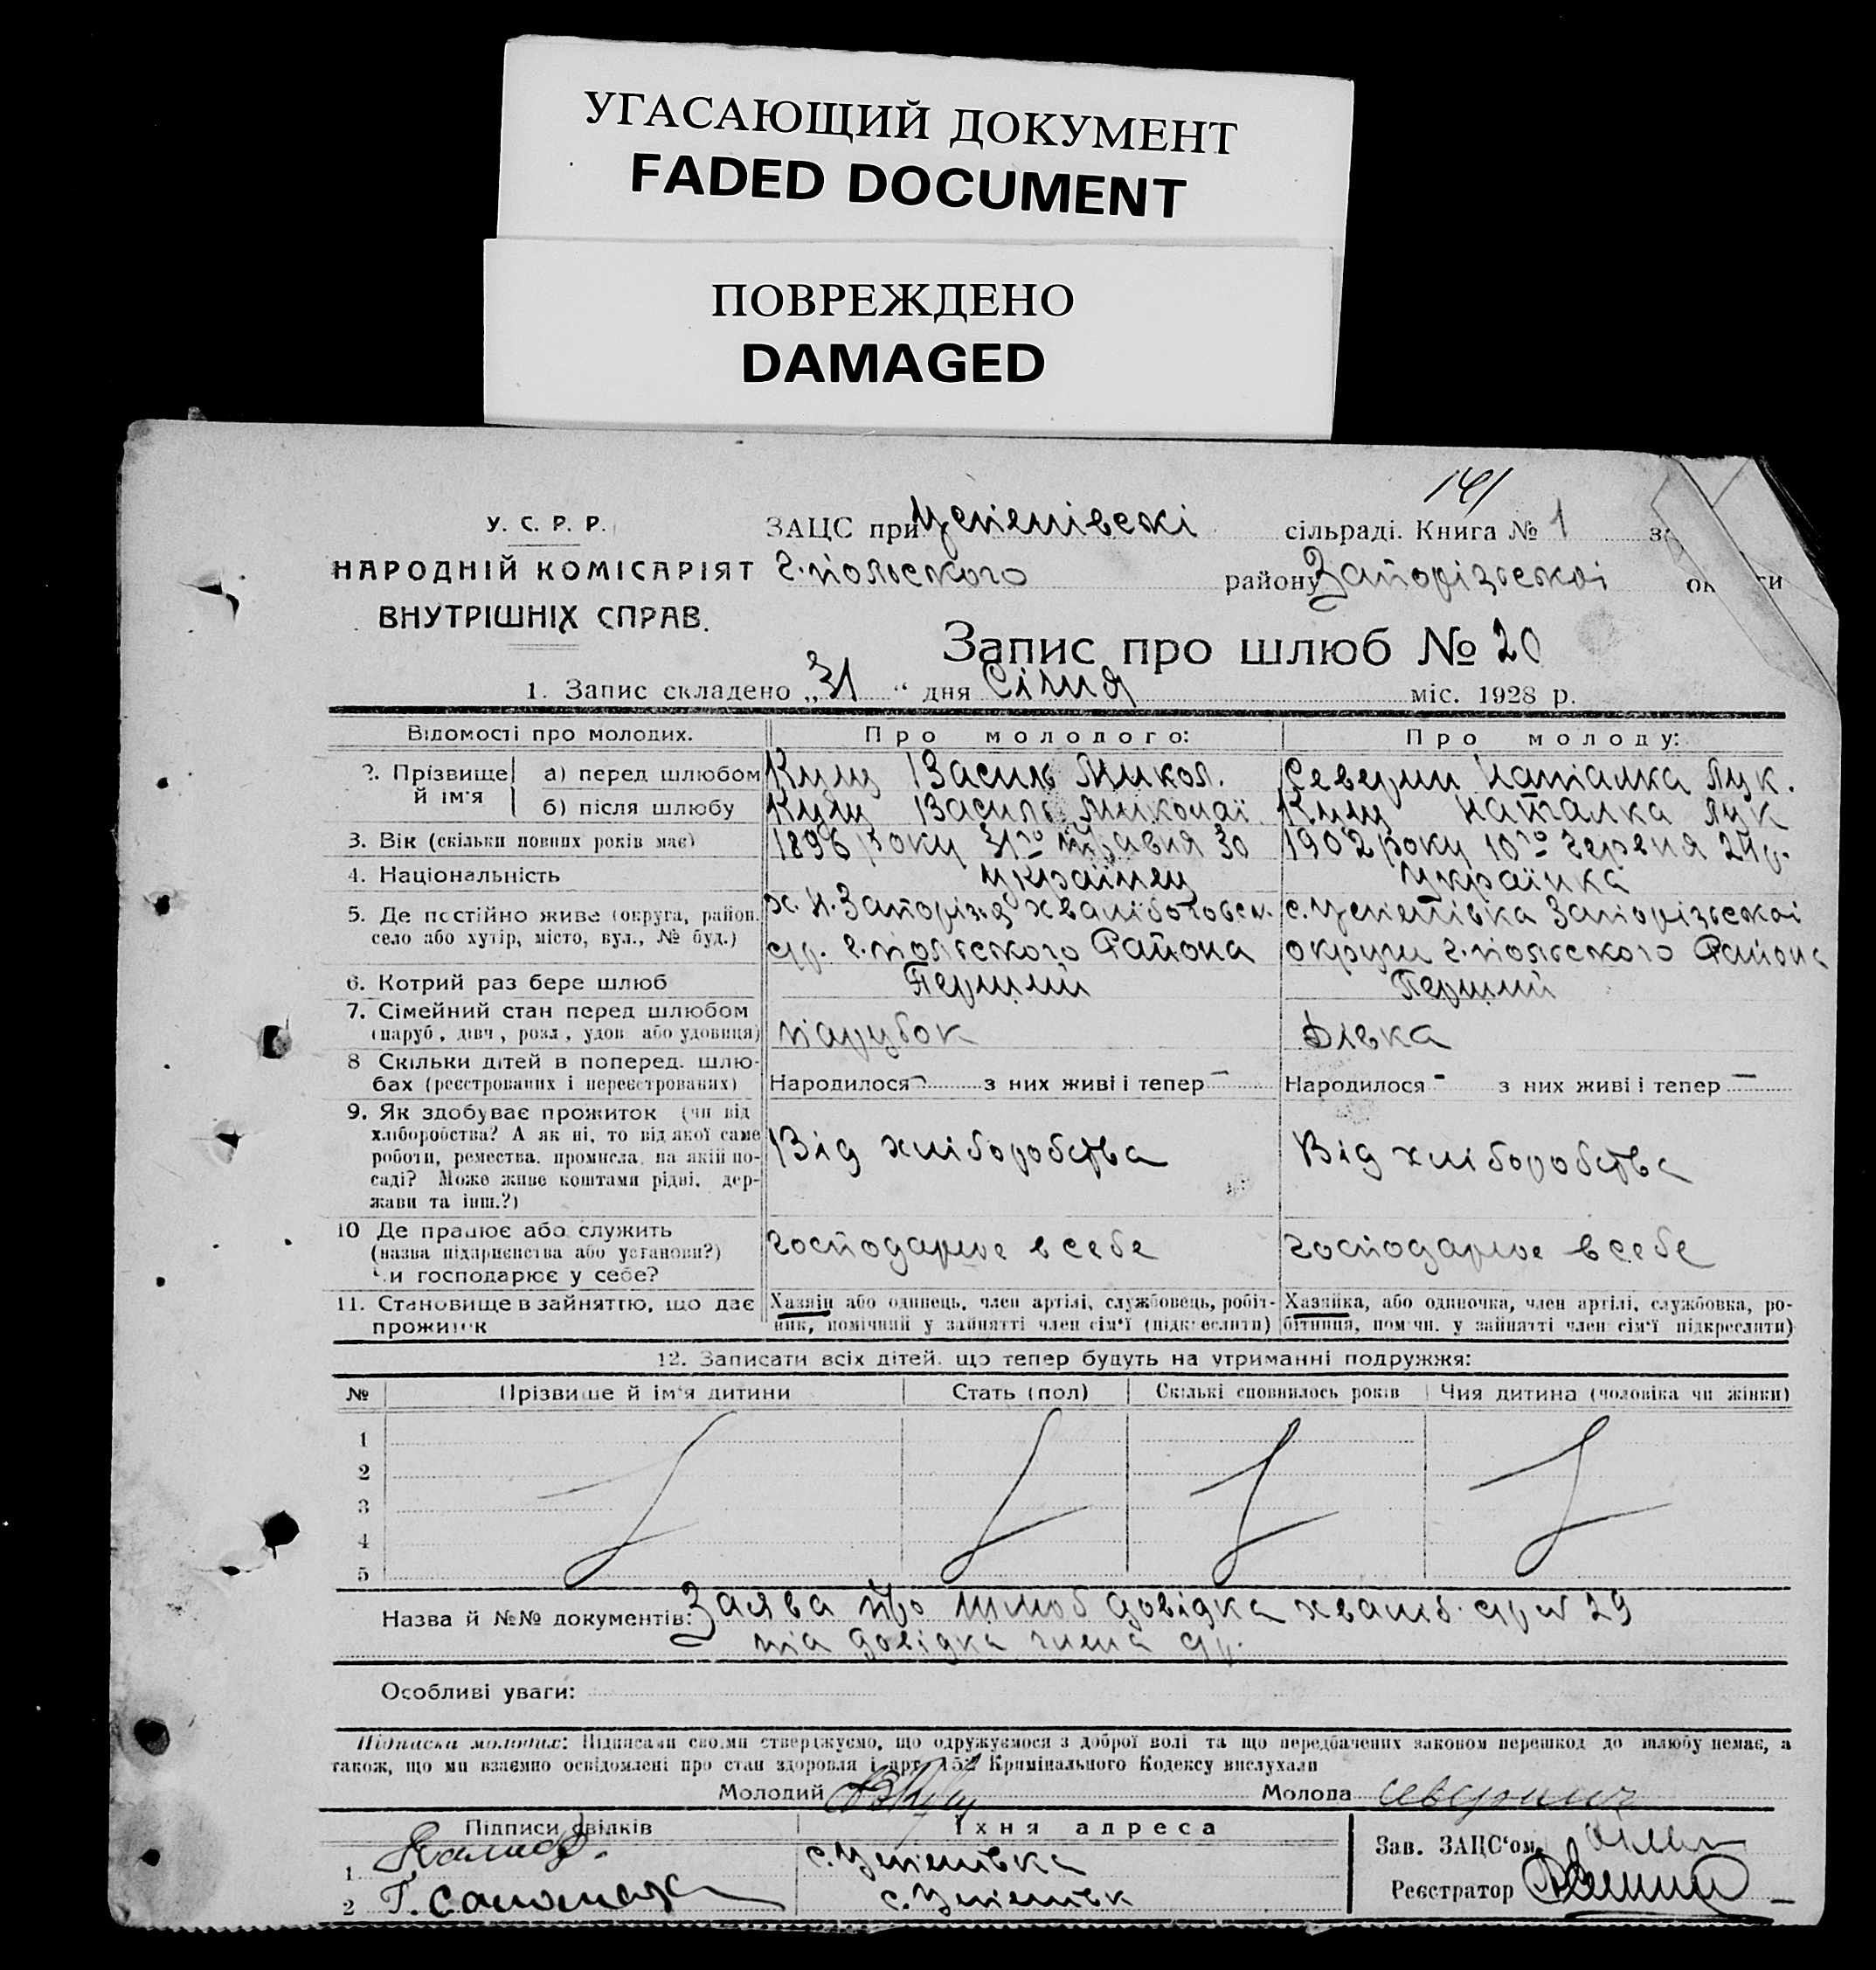 УГАСАЮЩИЙ ДОКУМЕНТ
FADED DOCUMENT
ПОВРЕЖДЕНО
DAMAGED
141
У. С. Р. Р.
НАРОДНІЙ КОМІСАРІЯТ
ВНУТРІШНІХ СПРАВ.
ЗАЦС при Успенівскі сільраді. Книга № 1
Г.польского району Запорізької
Запис про шлюб № 20
1. Запис складено „31“ дня Січня міс. 1928 р.
Відомості про молодих. Про молодого: Про молоду:
2. Прізвище й ім'я а) перед шлюбом Кущ Василь Микол. Северин Наталка Лук.
б) після шлюбу Кущ Василь Миколаї Кущ Наталка Лук
3. Вік (скільки повних років має) 1896 року 31го травня 30 1902 року 10го червня 24р.
4. Національність українец українка
5. Де постійно живе (округа, район. х. Н.Запоріжд с.Успенівка Запорізської
село або хутір, місто, вул., № буд.) с/р. Г.польского Района округи Г.польского Района
6. Котрий раз бере шлюб Перший Перший
7. Сімейний стан перед шлюбом
(паруб., дівч., розл., удов. або удовиця) парубок Дівка
8 Скільки дітей в поперед. шлю-
бах (реєстрованих і нереєстрованих) Народилося - з них живі і тепер - Народилося - з них живі і тепер -
9. Як здобуває прожиток (чи від
хліборобства? А як ні, то від якої саме
роботи, ремества, промисла, на якій по- Від хліборобства Від хліборобства
саді? Може живе коштами рідні, дер-
жави та інш.?)
10 Де працює або служить
(назва підприємства або установи?) господарює в себе господарює в себе
Чи господарює у себе?
11. Становище в зайняттю, що дає Хазяїн або одинець, член артілі, службовець, робіт- Хазяйка, або одиночка, член артілі, службовка, ро-
прожиток ник, помічний у зайнятті член сім'ї (підкреслити) бітниця, помічн. у зайнятті член сім'ї підкреслити)
12. Записати всіх дітей, що тепер будуть на утриманні подружжя:
№ Прізвище й ім'я дитини Стать (пол) Скількі сповнилось років Чия дитина (чоловіка чи жінки)
1
2
3
4
5
Назва й №№ документів: Заява про шлюб довідка хваліб. с/р № 29
та довідка члена с/р.
Особливі уваги:
Підписка молодих: Підписами своїми стверджуємо, що одружуємося з доброї волі та що передбачених законом перешкод до шлюбу немає, а
також, що ми взаємно освідомлені про стан здоровля і арт. 152 Кримінального Кодексу вислухали
Молодий Молода
Підписи свідків Їхня адреса
Зав. ЗАЦС'ом
1 с.Успенівка
Реєстратор
2 с.Успенівк